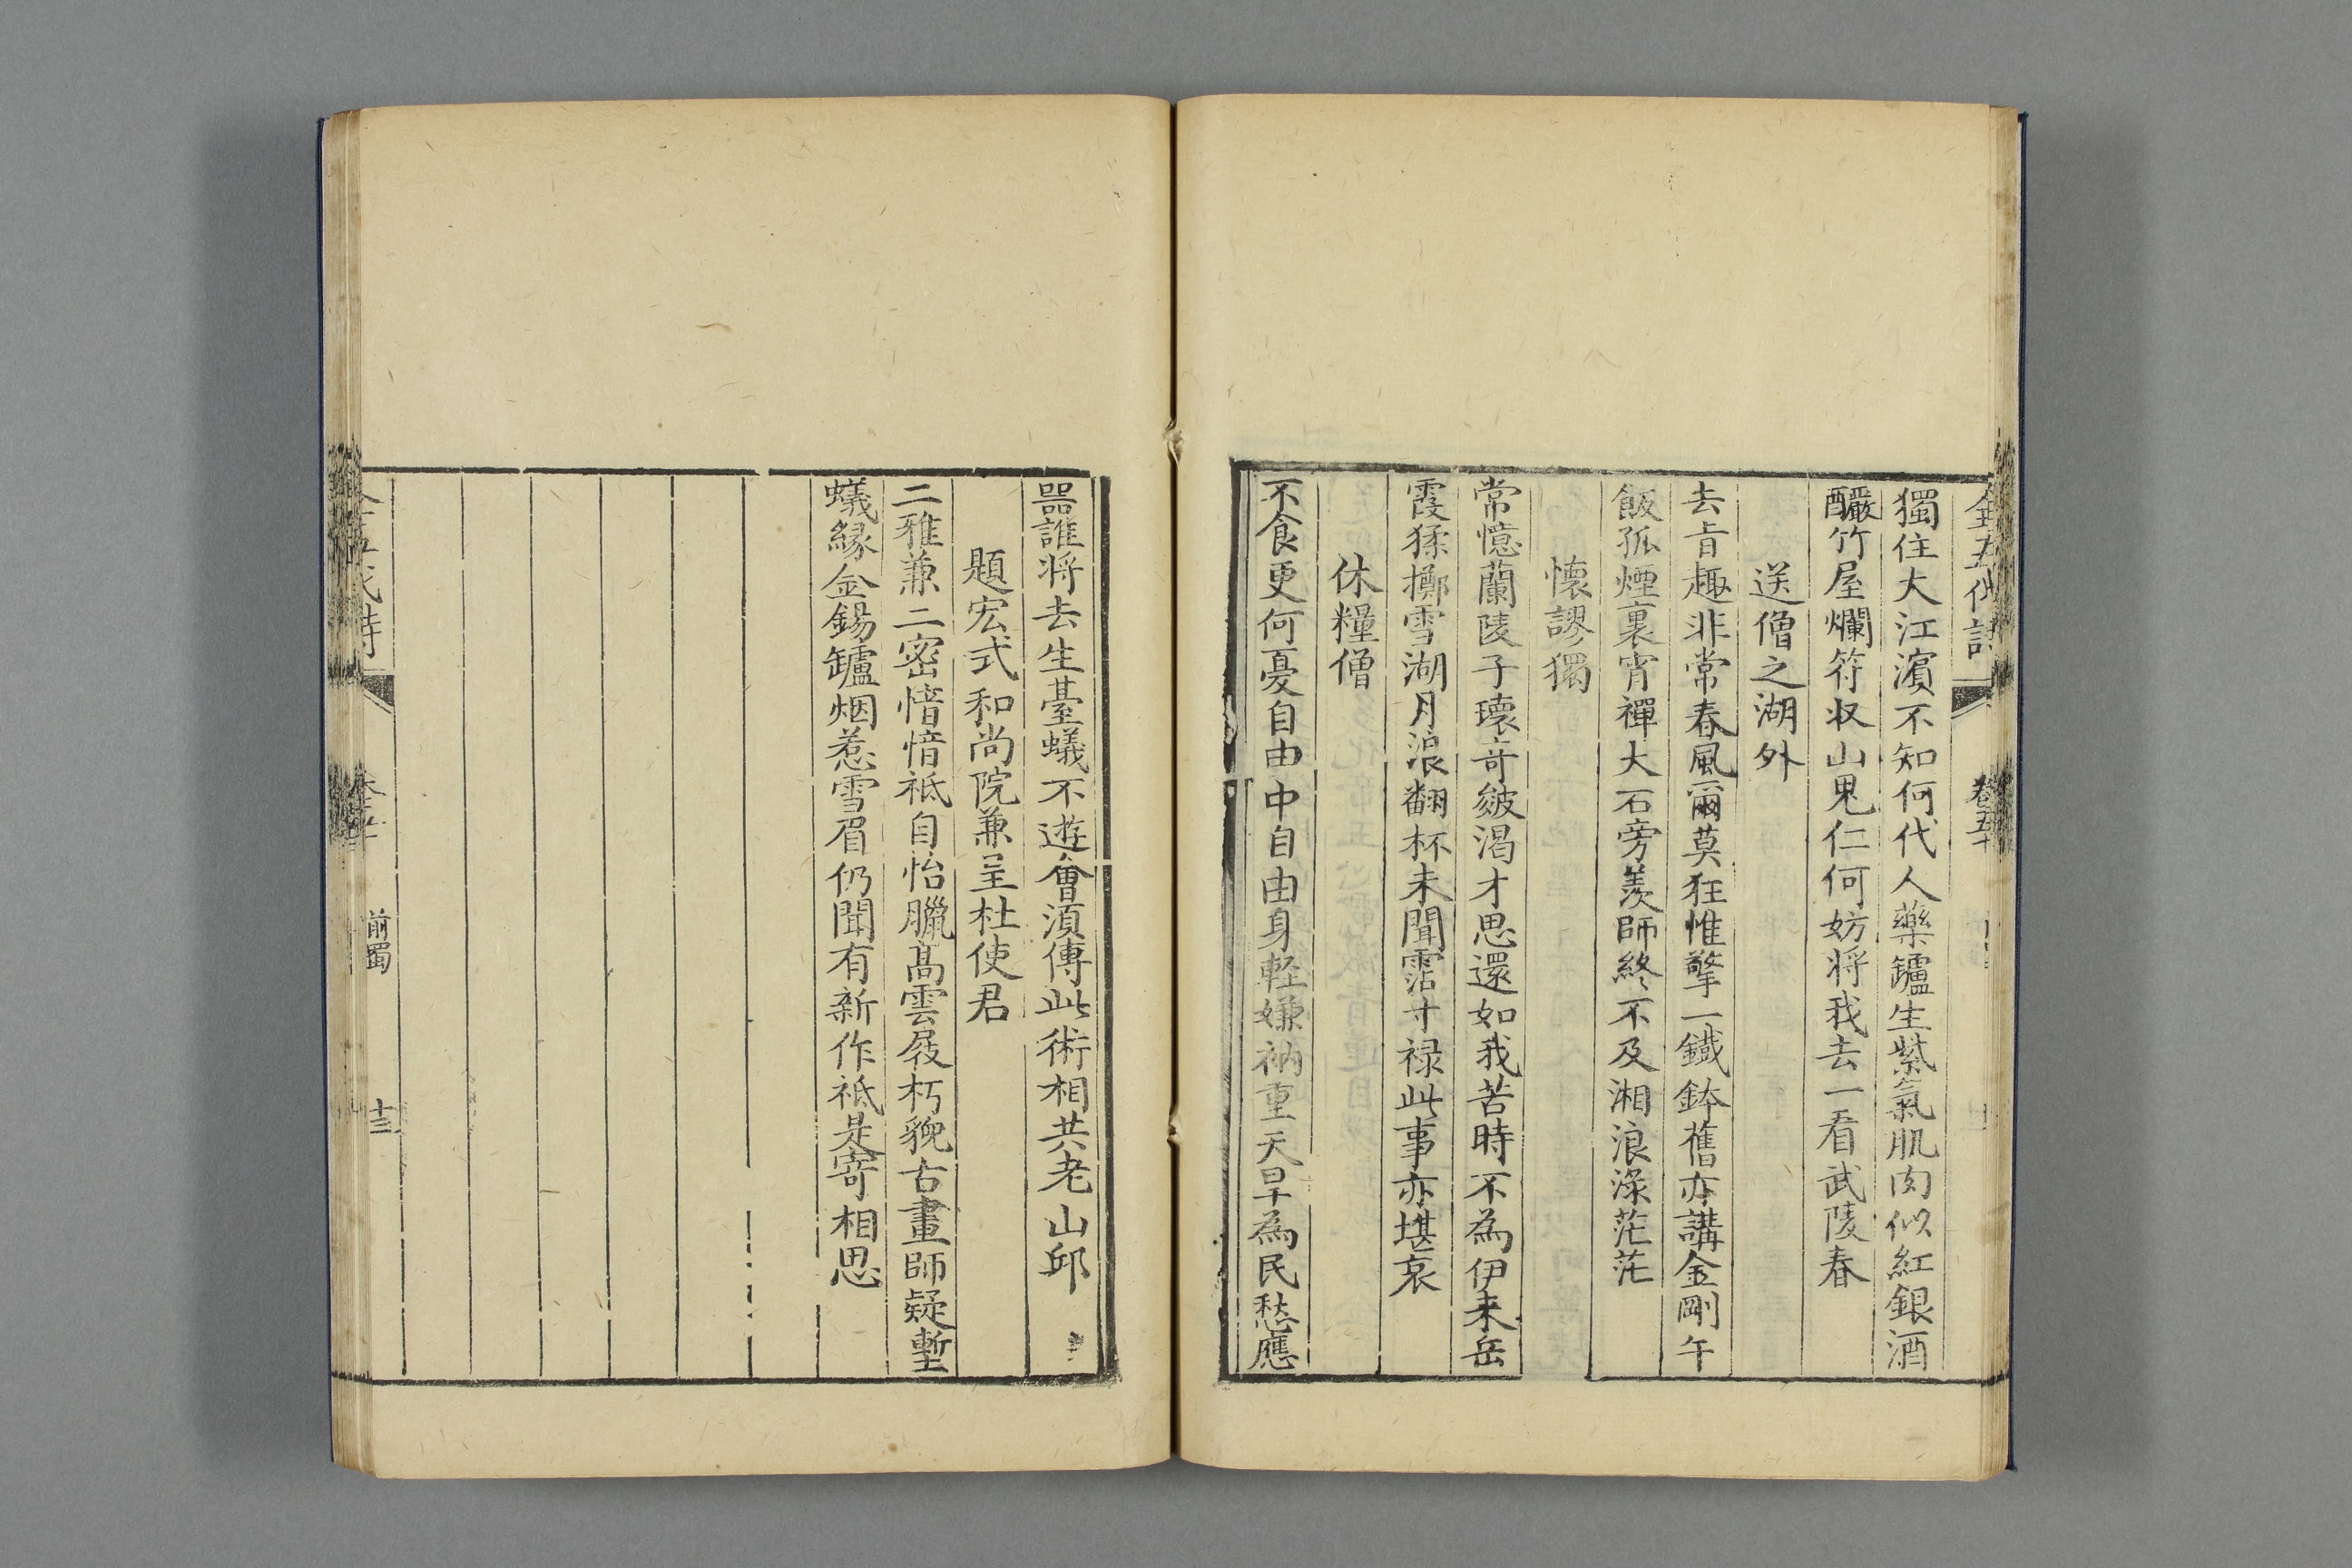 全五代詩
卷五十
獨住大江濱不知何代人藥鑪生紫氣肌肉似紅銀酒
釅竹屋爛符収山鬼仁何妨将我去一看武陵春
送僧之湖外
去㫖趣非常春風爾莫狂惟擎一鐵鉢舊亦講金剛午
飯孤煙裏宵禪大石旁羨師終不及湘浪渌茫茫
懷謬獨
常憶蘭陵子瓌奇皴渴才思還如我苦時不為伊来岳
霞猱擲雪湖月浪翻杯未聞霑寸禄此事亦堪哀
休糧僧
不食更何憂自由中自由身輕嫌衲重天旱為民愁應
噐誰将去生臺蟻不遊會湏傳此術相共老山邱
題宏式和尚院兼呈杜使君
二雅兼二密愔愔祗自怡臘髙雲屐朽貌古畫師疑塹
蟻緣金錫鑪烟惹雪眉仍聞有新作祗是寄相思
前蜀
十三